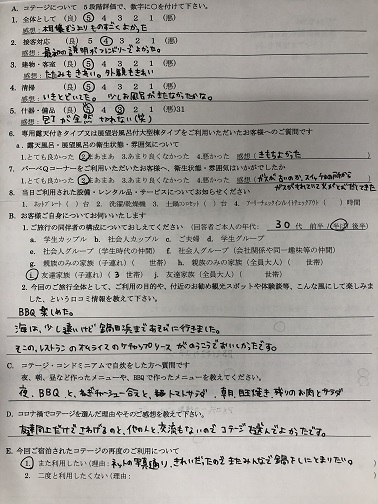 A. コテージについて 5段階評価で、数字に○を付けて下さい。
1. 全体として (良) 5 4 3 2 1 (悪)
感想：想像よりものすごくよかった
2. 接客対応 (良) 5 4 3 2 1 (悪)
感想：最初の説明がていねいでよかった。
3. 建物・客室 (良) 5 4 3 2 1 (悪)
感想：たたみもきれい。外観もきれい
4. 清掃 (良) 5 4 3 2 1 (悪)
感想：いきとどいてた。少しお風呂がきたなかったかな。
5. 什器・備品 (良) 5 4 3 2 1 (悪)31
感想：包丁が全然切れない(笑)
6. 専用露天付きタイプ又は展望岩風呂付大型棟タイプをご利用いただいたお客様へのご質問です
a. 露天風呂・展望風呂の衛生状態・雰囲気について
1.とても良かった 2.まあまあ 3.あまり良くなかった 4.悪かった 感想（きもちよかった）
7. バーベQコーナーをご利用いただいたお客様へ、衛生状態・雰囲気はいかがでしたか
1.とても良かった 2.まあまあ 3.あまり良くなかった 4.悪かった 感想（ガスが
8. 当日ご利用された設備・レンタル品・サービスについてお知らせください
B. お客様ご自身についてお伺いいたします
1. ご旅行の同伴者の構成についておしえてください （回答者ご本人の年代： 30代 前半／中頃／後半）
a. 学生カップル b. 社会人カップル c. ご夫婦 d. 学生グループ
e. 社会人グループ（学生時代の仲間） f. 社会人グループ（会社関係や同一趣味等の仲間）
g. 親族のみの家族（子連れ）（ 世帯） h. 親族のみの家族（全員大人）（ 世帯）
i. 友達家族（子連れ）（ 3 世帯） j. 友達家族（全員大人）（ 世帯）
2. 今回のご旅行全体として、ご利用の目的や、付近のお勧め観光スポットや体験談等、こんな風にして楽しみま
した、という口コミ情報を教えて下さい。
BBQ 楽しめた。
海は、少し遠いけど鍋田浜まであそびに行きました。
そこの、レストランのオムライスのケチャップソースがのうこうでおいしかったです。
C. コテージ・コンドミニアムで自炊をした方へ質問です
夜、朝、昼など作ったメニューや、BBQで作ったメニューを教えてください。
夜、BBQと、ねぎチャーシュー和えと、麺トマトサラダ 朝、目玉焼き 残りのお肉とサラダ
D. コロナ禍でコテージを選んだ理由やそのご感想を教えて下さい。
友達同士だけでさわげるのと、他の人と交流もないのでコテージを選んでよかったです。
E. 今回ご宿泊されたコテージの再度のご利用について
1. また利用したい（理由：ネットの写真通り、きれいだったのでまたみんなで
2. 二度と利用したくない（理由：